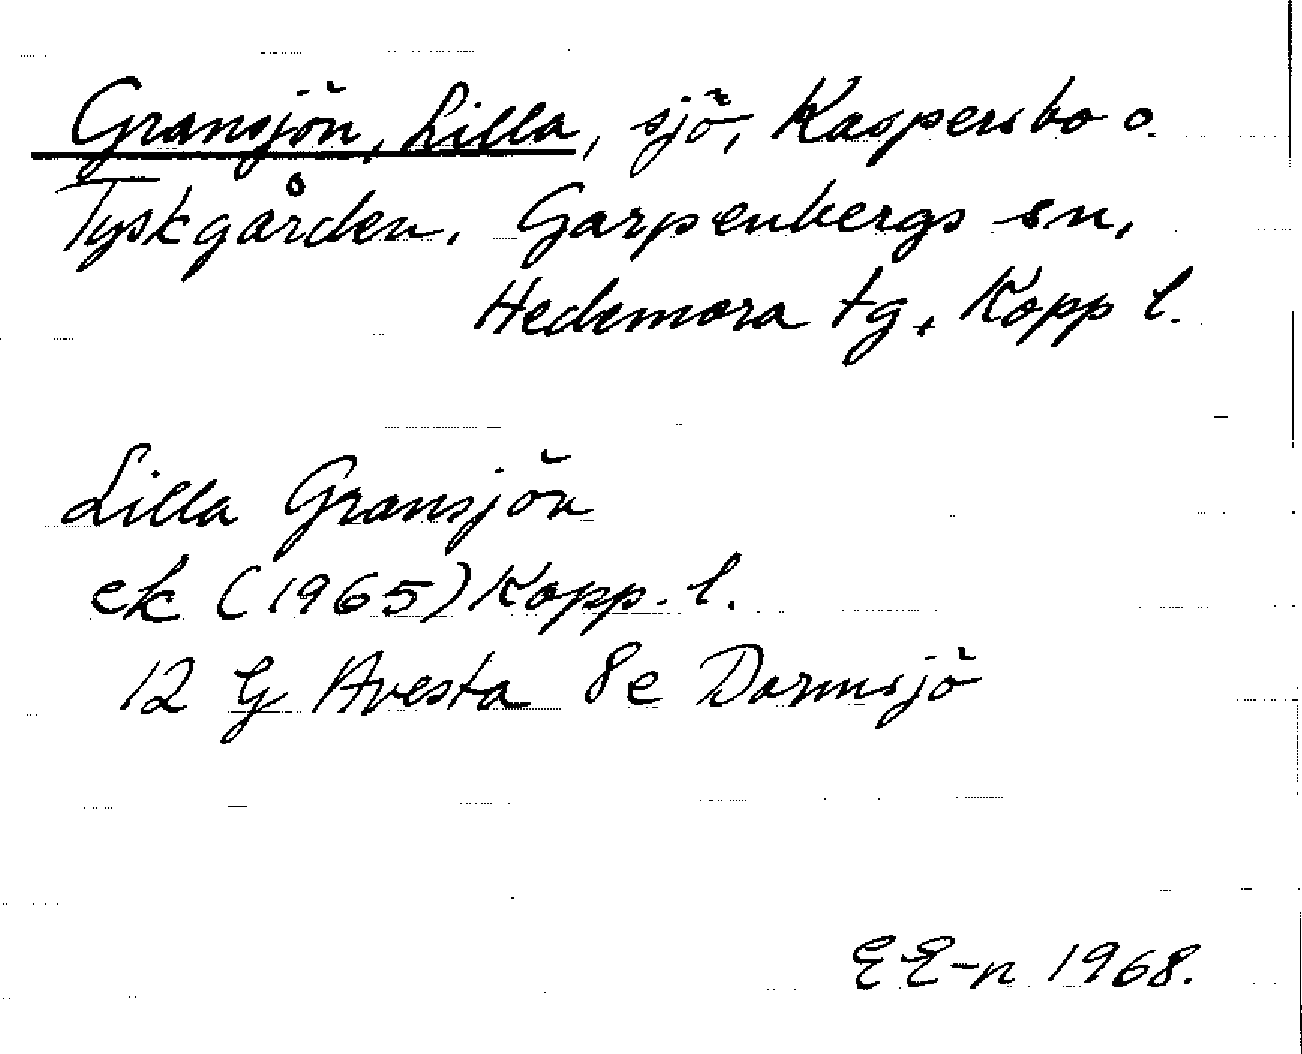 Gransjön, Lilla, sjö, Kaspersbo o.
Tyskgården. Garpenbergs sn,
Hedemora tg, Kopp l.
Lilla Gransjön
ek (1965) Kopp. l.
12 G Avesta 8e Dormsjö
EE-n 1968.